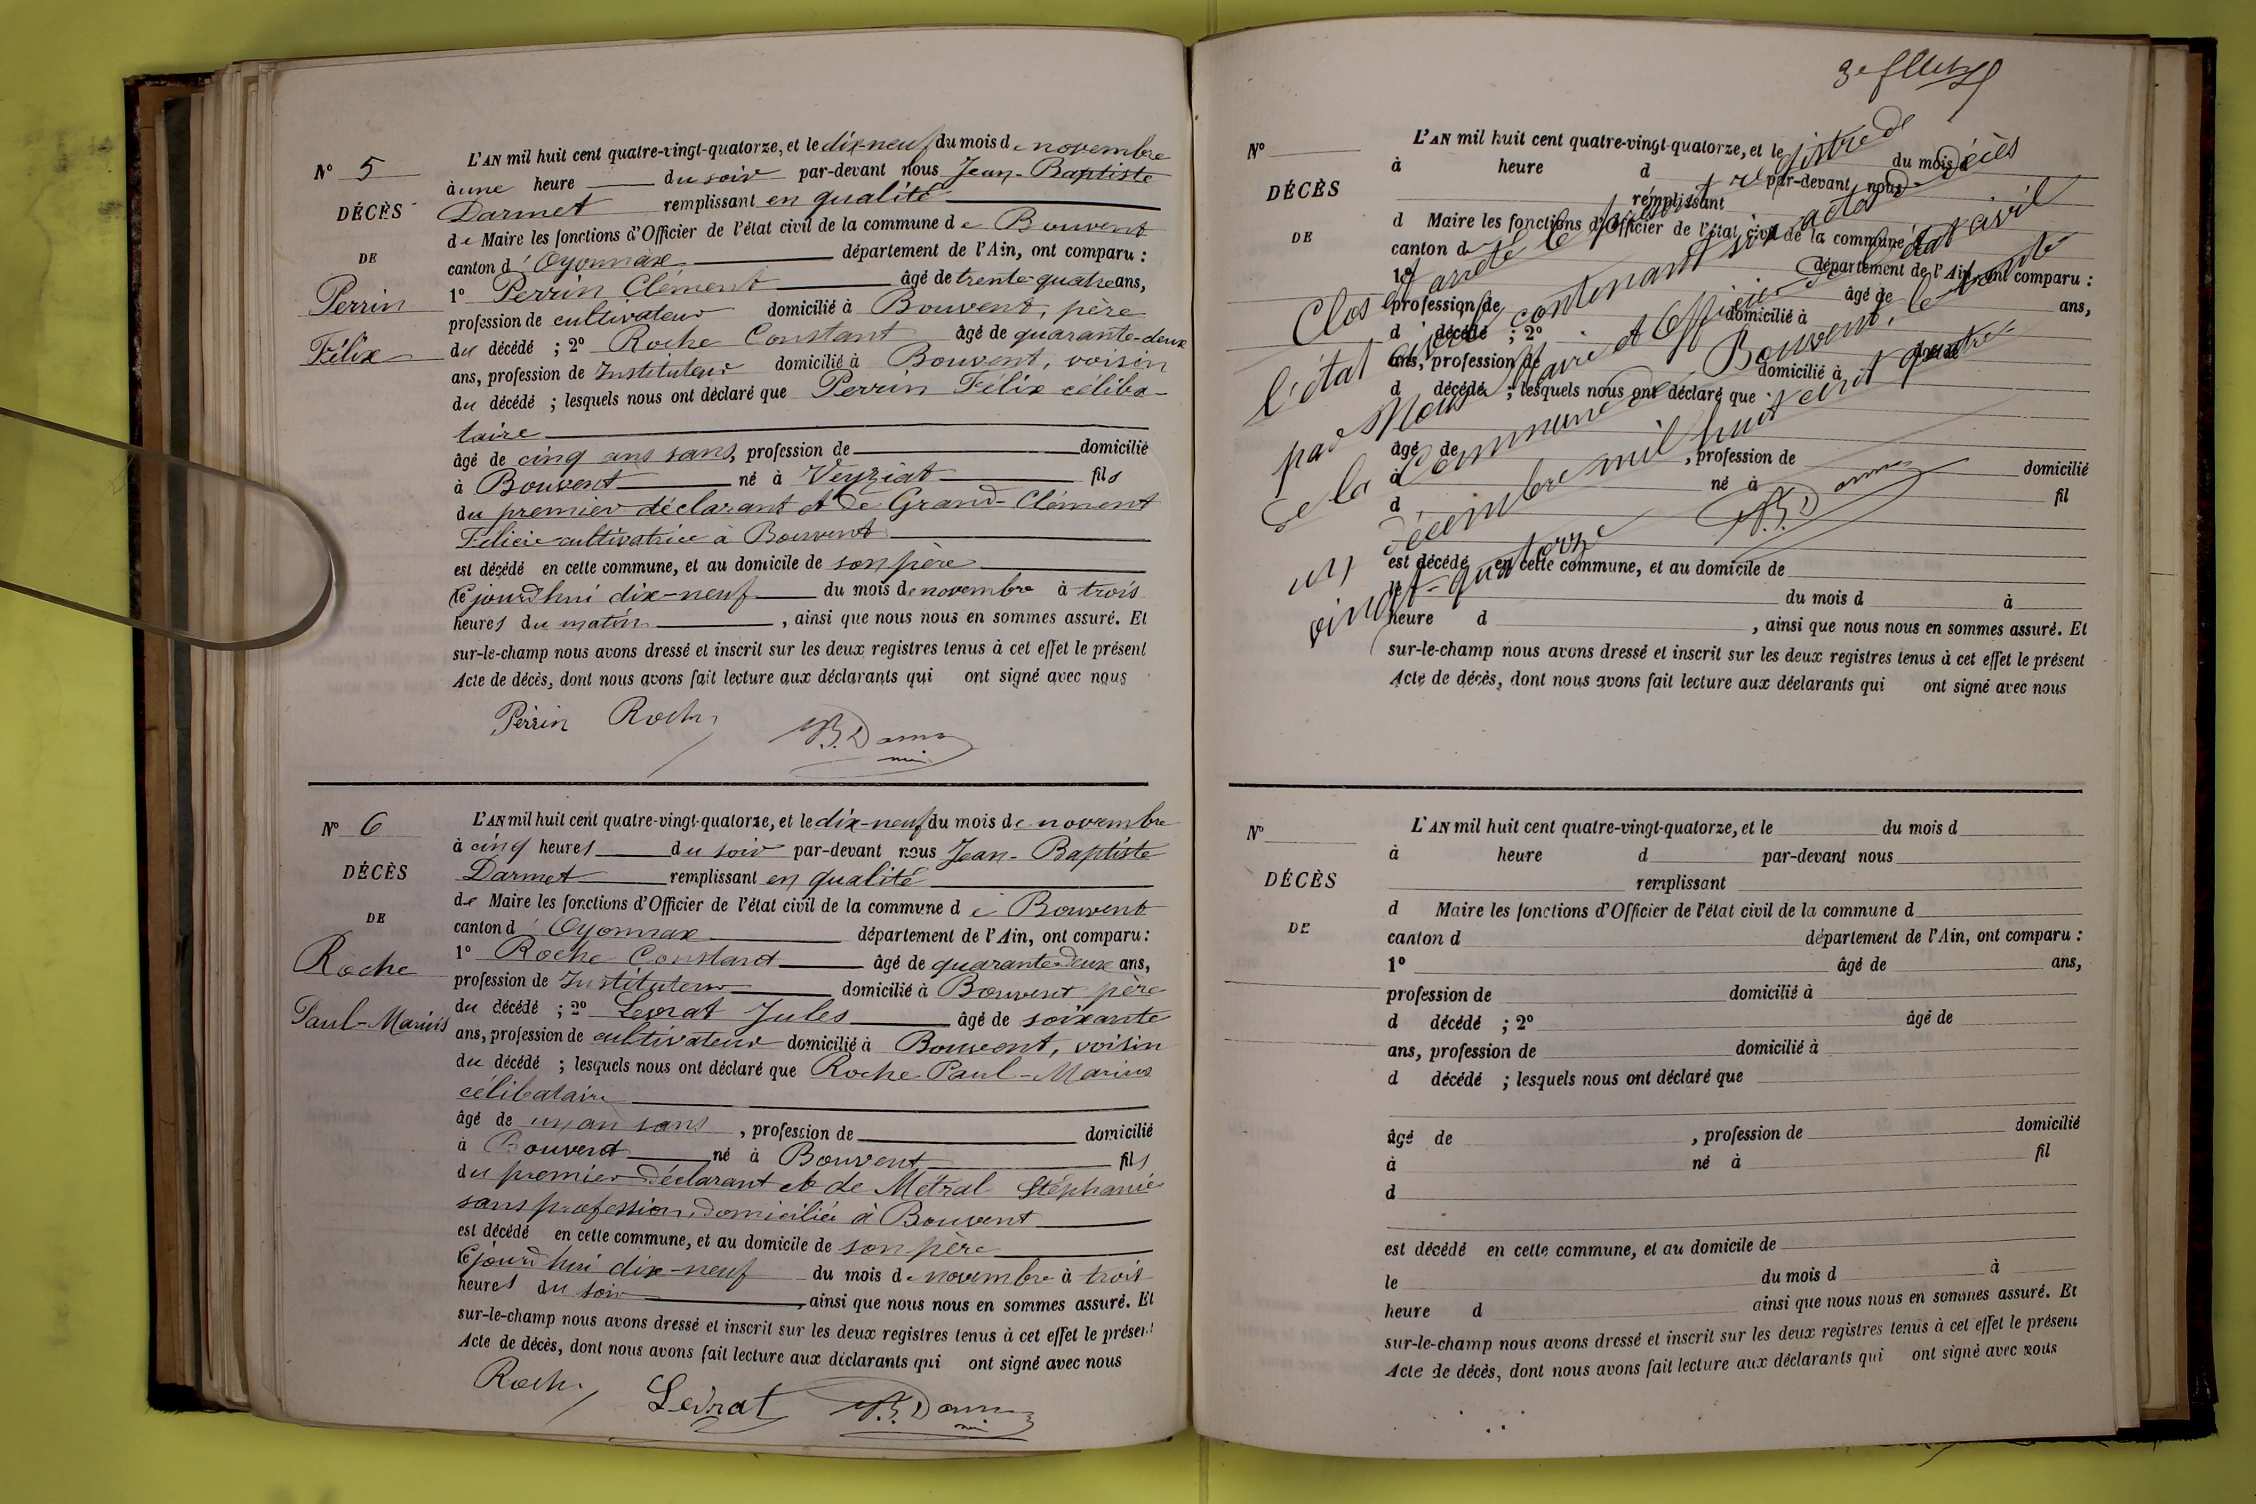 N° 5
DÉCÈS
DE
Perrin
Félix
L'AN mil huit cent quatre-vingt-quatorze, et le dix-neuf du mois de novembre
à une heure du soir par-devant nous Jean-Baptiste
Darmet remplissant en qualité
de Maire les fonctions d'Officier de l'état civil de la commune de Bouvent
canton d'Oyonnax département de l'Ain, ont comparu :
1° Perrin Clément âgé de trente-quatre ans,
profession de cultivateur domicilié à Bouvent, père
du décédé ; 2° Roche Constant âgé de quarante-deux
ans, profession de Instituteur domicilié à Bouvent, voisin
du décédé ; lesquels nous ont déclaré que Perrin Félix céliba-
taire
âgé de cinq ans sans, profession de domicilié
à Bouvent né à Veyziat fils
du premier déclarant et de Grand-Clément
Félicie cultivatrice à Bouvent
est décédé en cette commune, et au domicile de son père
cejourd'hui dix-neuf du mois de novembre à trois
heures du matin, ainsi que nous nous en sommes assuré. Et
sur-le-champ nous avons dressé et inscrit sur les deux registres tenus à cet effet le présent
Acte de décès, dont nous avons fait lecture aux déclarants qui ont signé avec nous
Perrin Roche
N° 6
DÉCÈS
DE
Roche
Paul-Marius
L'AN mil huit cent quatre-vingt-quatorze, et le dix-neuf du mois de novembre
à cinq heures du soir par-devant nous Jean-Baptiste
Darmet remplissant en qualité
de Maire les fonctions d'Officier de l'état civil de la commune de Bouvent
canton d'Oyonnax département de l'Ain, ont comparu :
1° Roche Constant âgé de quarante-deux ans,
profession de Instituteur domicilié à Bouvent père
du décédé ; 2° Levrat Jules âgé de soixante
ans, profession de cultivateur domicilié à Bouvent, voisin
du décédé ; lesquels nous ont déclaré que Roche Paul-Marius
célibataire
âgé de un an sans, profession de domicilié
à Bouvent né à Bouvent fils
du premier déclarant et de Métral Stéphanie
sans profession, domiciliée à Bouvent
est décédé en cette commune, et au domicile de son père
cejourd'hui dix-neuf du mois de novembre à trois
heures du soir, ainsi que nous nous en sommes assuré. Et
sur-le-champ nous avons dressé et inscrit sur les deux registres tenus à cet effet le présent
Acte de décès, dont nous avons fait lecture aux déclarants qui ont signé avec nous
Roche Levrat
N°
DÉCÈS
DE
L'AN mil huit cent quatre-vingt-quatorze, et le du mois d
à heure d par-devant nous
remplissant
d Maire les fonctions d'Officier de l'état civil de la commune d
canton d département de l'Ain, ont comparu :
1° âgé de ans,
profession de domicilié à
d décédé ; 2° âgé de
ans, profession de domicilié à
d décédé ; lesquels nous ont déclaré que
âgé de , profession de domicilié
à né à fil
d
est décédé en cette commune, et au domicile de
le du mois d à
heure d , ainsi que nous nous en sommes assuré. Et
sur-le-champ nous avons dressé et inscrit sur les deux registres tenus à cet effet le présent
Acte de décès, dont nous avons fait lecture aux déclarants qui ont signé avec nous
Clos et arrêté le présent registre de
l'état civil contenant six actes de décès
par Nous Maire et Officier de l'état civil
de la Commune de Bouvent, le trente
un décembre mil huit cent quatre-
vingt-quatorze
N°
DÉCÈS
DE
L'AN mil huit cent quatre-vingt-quatorze, et le du mois d
à heure d par-devant nous
remplissant
d Maire les fonctions d'Officier de l'état civil de la commune d
canton d département de l'Ain, ont comparu :
1° âgé de ans,
profession de domicilié à
d décédé ; 2° âgé de
ans, profession de domicilié à
d décédé ; lesquels nous ont déclaré que
âgé de , profession de domicilié
à né à fil
d
est décédé en cette commune, et au domicile de
le du mois d à
heure d ainsi que nous nous en sommes assuré. Et
sur-le-champ nous avons dressé et inscrit sur les deux registres tenus à cet effet le présent
Acte de décès, dont nous avons fait lecture aux déclarants qui ont signé avec nous